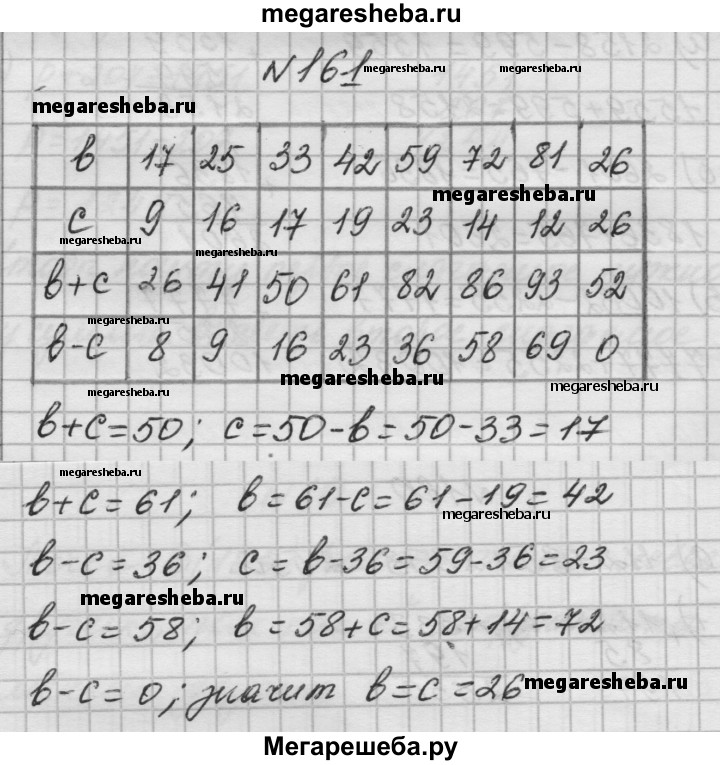 megaresheba.ru
N161 megaresheba.ru megaresheba.ru
megaresheba.ru
в 17 25 33 42 59 72 81 26
megaresheba.ru
с 9 16 17 19 23 14 12 26
megaresheba.ru
megaresheba.ru
в+с 26 41 50 61 82 86 93 52
megaresheba.ru
в-с 8 9 16 23 36 58 69 0
megaresheba.ru
megaresheba.ru
megaresheba.ru
в+с=50; с=50-в=50-33=17
megaresheba.ru
в+с=61; в=61-с=61-19=42
megaresheba.ru
в-с=36; с=в-36=59-36=23
megaresheba.ru
в-с=58; в=58+с=58+14=72
в-с=0; значит в=с=26 megaresheba.ru
Мегарешеба.ру